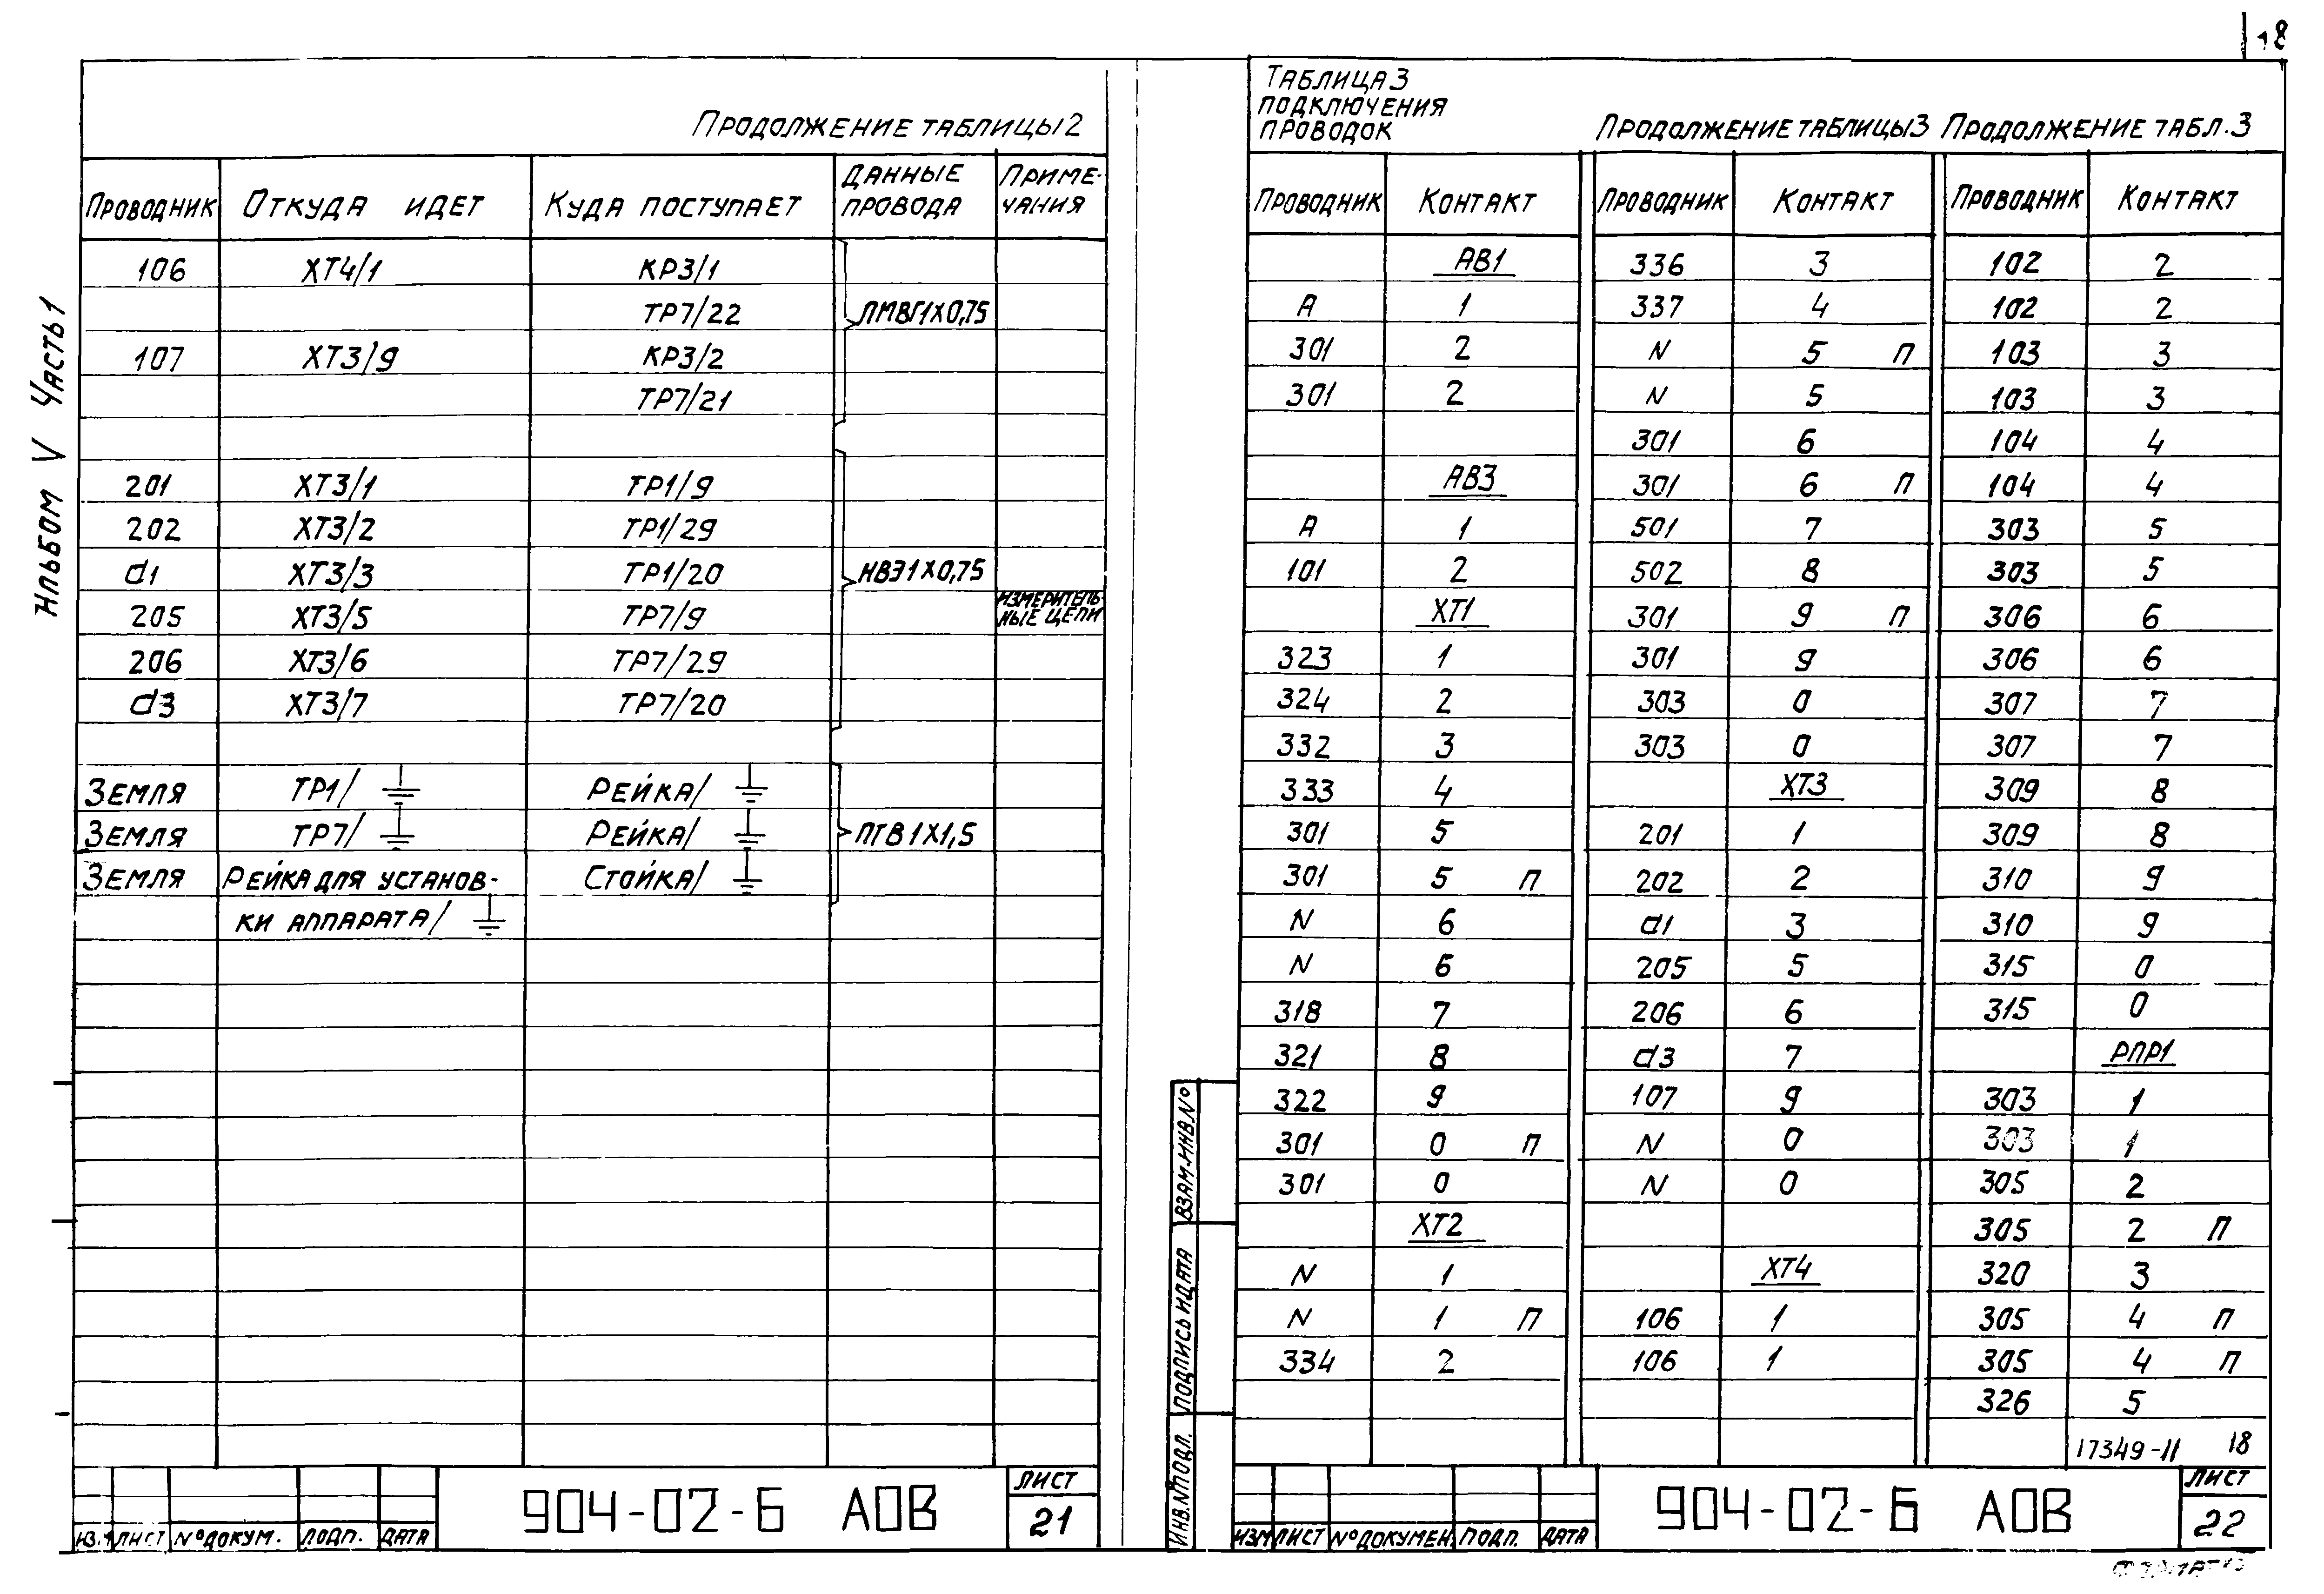 18
Альбом V Часть 1
Продолжение таблицы 2
Проводник | Откуда идет | Куда поступает | Данные провода | Приме-чания
106 | ХТ4/1 | КР3/1
ТР7/22 | ПМВГ1х0,75
107 | ХТ3/9 | КР3/2
ТР7/21
201 | ХТ3/1 | ТР1/9
202 | ХТ3/2 | ТР1/29
d1 | ХТ3/3 | ТР1/20 | НВЭ1х0,75
205 | ХТ3/5 | ТР7/9 | Измеритель-ные цепи
206 | ХТ3/6 | ТР7/29
d3 | ХТ3/7 | ТР7/20
Земля | ТР1/⏚ | Рейка/⏚
Земля | ТР7/⏚ | Рейка/⏚ | ПГВ1х1,5
Земля | Рейка для установ- | Стойка/⏚
ки аппарата/⏚
Изм. Лист № докум. Подп. Дата
904-02-6 АОВ
Лист
21
Таблица 3
подключения
проводок
Проводник | Контакт
АВ1
А | 1
301 | 2
301 | 2
АВ3
А | 1
101 | 2
ХТ1
323 | 1
324 | 2
332 | 3
333 | 4
301 | 5
301 | 5 П
N | 6
N | 6
318 | 7
321 | 8
322 | 9
301 | 0 П
301 | 0
ХТ2
N | 1
N | 1 П
334 | 2
Продолжение таблицы 3
Проводник | Контакт
336 | 3
337 | 4
N | 5 П
N | 5
301 | 6
301 | 6 П
501 | 7
502 | 8
301 | 9 П
301 | 9
303 | 0
303 | 0
ХТ3
201 | 1
202 | 2
d1 | 3
205 | 5
206 | 6
d3 | 7
107 | 9
N | 0
N | 0
ХТ4
106 | 1
106 | 1
Продолжение табл. 3
Проводник | Контакт
102 | 2
102 | 2
103 | 3
103 | 3
104 | 4
104 | 4
303 | 5
303 | 5
306 | 6
306 | 6
307 | 7
307 | 7
309 | 8
309 | 8
310 | 9
310 | 9
315 | 0
315 | 0
РПР1
303 | 1
303 | 1
305 | 2
305 | 2 П
320 | 3
305 | 4 П
305 | 4 П
326 | 5
17349-II 18
Взам.инв.№
Подпись и дата
Инв.№подл.
Изм Лист № докумен. Подп. Дата
904-02-6 АОВ
Лист
22